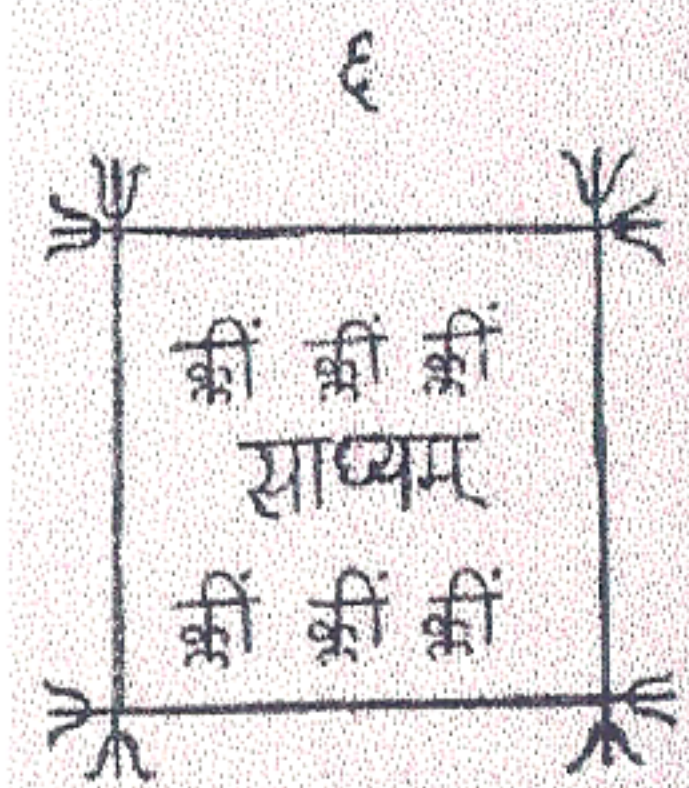 ६
क्लीं क्लीं क्लीं
साध्यम्
क्लीं क्लीं क्लीं